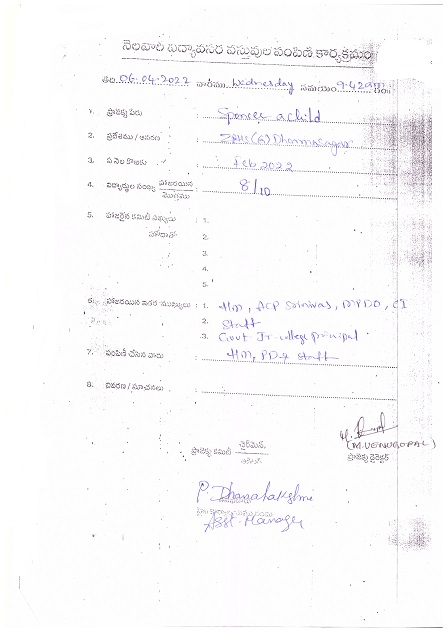 నెలవారీ విద్యావసర వస్తువుల పంపిణీ కార్యక్రమం
తేది. 06-04-2022 వారము. Wednesday సమయం 9-42am గం॥
1. ప్రాజెక్టు పేరు : Sponcer a child
2. ప్రదేశము / ఆవరణ : Zone(6) Dharmasagar
3. ఏ నెల కొఱకు : Feb 2022
4. విద్యార్థుల సంఖ్య హాజరయిన / మొత్తము : 8/10
5. హాజరైన కమిటీ సభ్యులు : 1.
హోదాతో 2.
3.
4.
5.
6. హాజరయిన ఇతర ముఖ్యులు : 1. HM, ACP Srinivas, MPDO, CI
2. Staff
3. Govt Jr. college principal
7. పంపిణీ చేసిన వారు : HM, PD & Staff
8. వివరణ / సూచనలు :
ప్రాజెక్టు కమిటీ చైర్మెన్
(M. VENUGOPAL)
ప్రాజెక్టు డైరెక్టర్
P. Dhanalakshmi
Asst. Manager